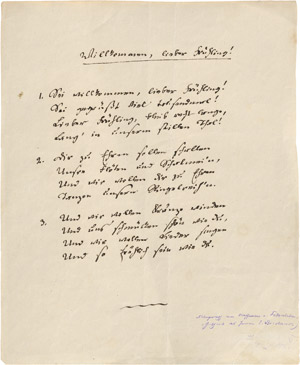 Willkommen, lieber Frühling!
1. Sei willkommen, lieber Frühling!
Sei gegrüßt viel tausendmal!
Lieber Frühling, bleib recht lange,
Lang' in unserm stillen Thal!
2. Dir zu Ehren sollen schallen
Unsre Flöten und Schalmein,
Und wir wollen dir zu Ehren
Tanzen unsern Ringelreih'n.
3. Und wir wollen Kränze winden
Und uns schmücken schön wie du,
Und wir wollen Lieder singen
Und so fröhlich sein wie du.